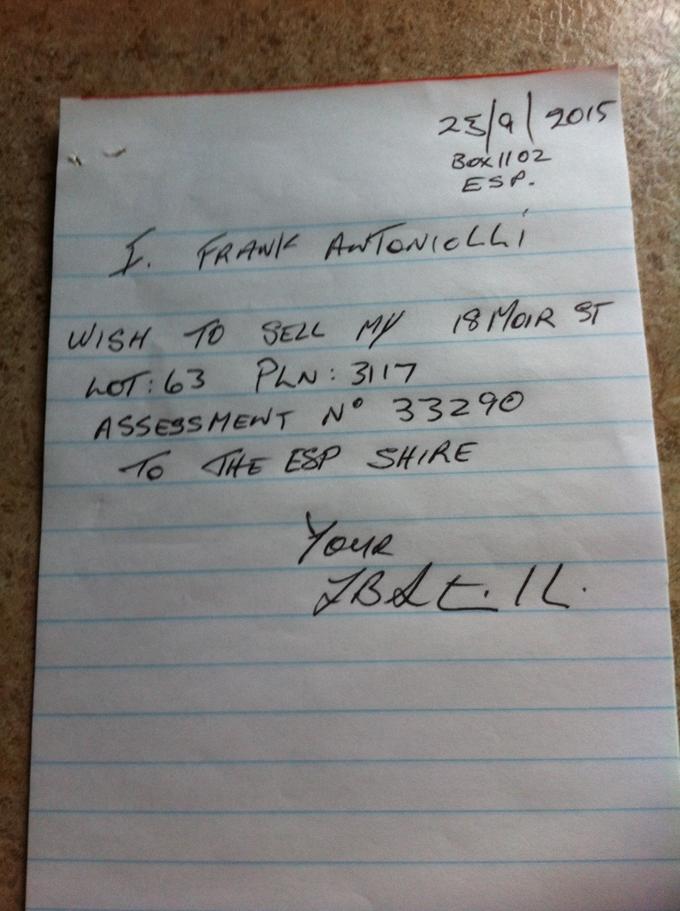 23/9/2015
BOX 1102
ESP.
I. FRANK ANTONIOLLI
WISH TO SELL MY 18 MOIR ST
LOT: 63 PLN: 3117
ASSESSMENT Nº 33290
TO THE ESP SHIRE
YOUR